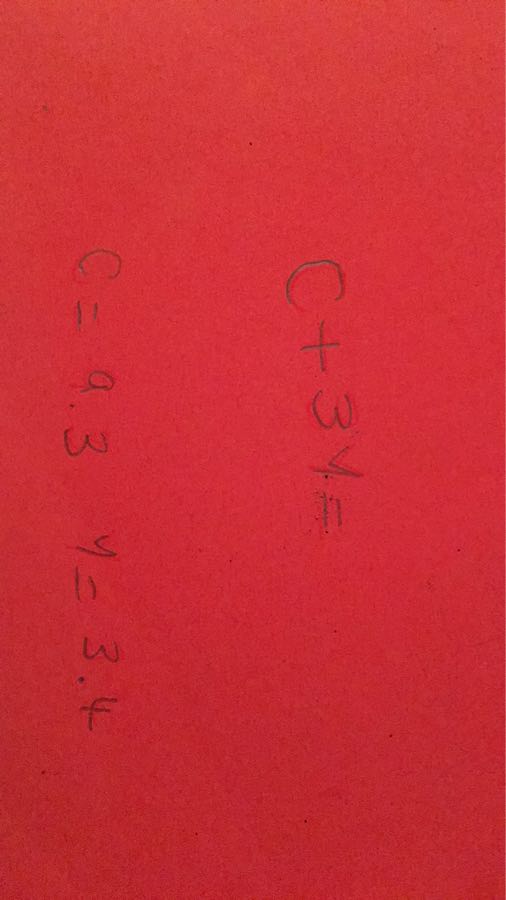 C + 3y =
C = 9.3 y = 3.4